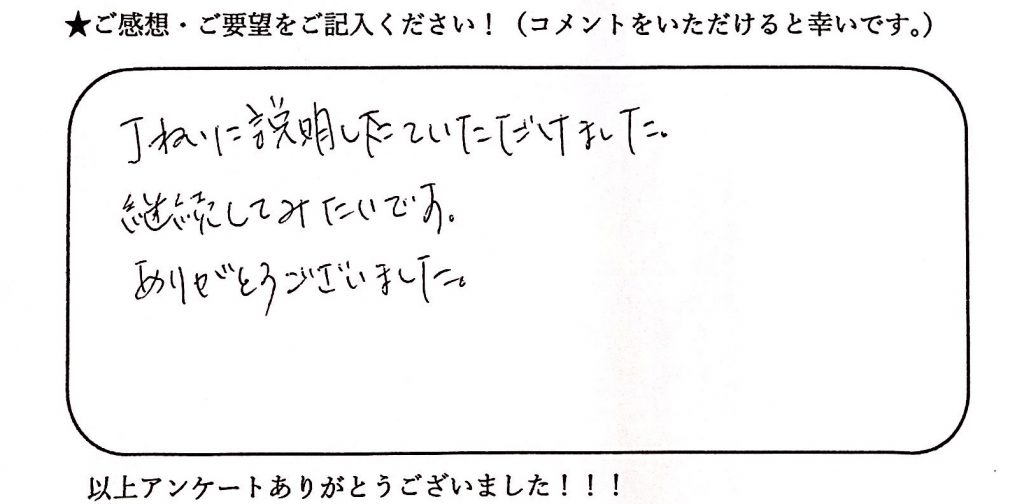 ★ご感想・ご要望をご記入ください！（コメントをいただけると幸いです。）
丁ねいに説明したていただけました。
継続してみたいです。
ありがとうございました。
以上アンケートありがとうございました！！！